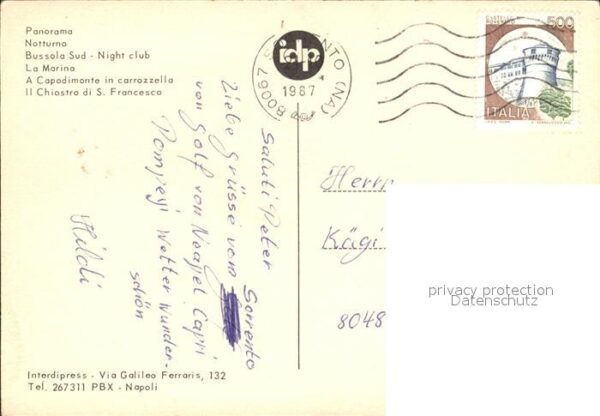 Panorama
Notturno
Bussola Sud - Night club
La Marina
A Capodimonte in carrozzella
Il Chiostro di S. Francesco
idp
80067 SORRENTO (NA)
1987
CASTELLO
500
ITALIA
Saluti Peter
Liebe Grüsse vom Sorrento
von Golf von Neapel Capri
Pompeji Wetter Wunder-
schön
Hildi
Herrn
Kägi
8048
privacy protection
Datenschutz
Interdipress - Via Galileo Ferraris, 132
Tel. 267311 PBX - Napoli